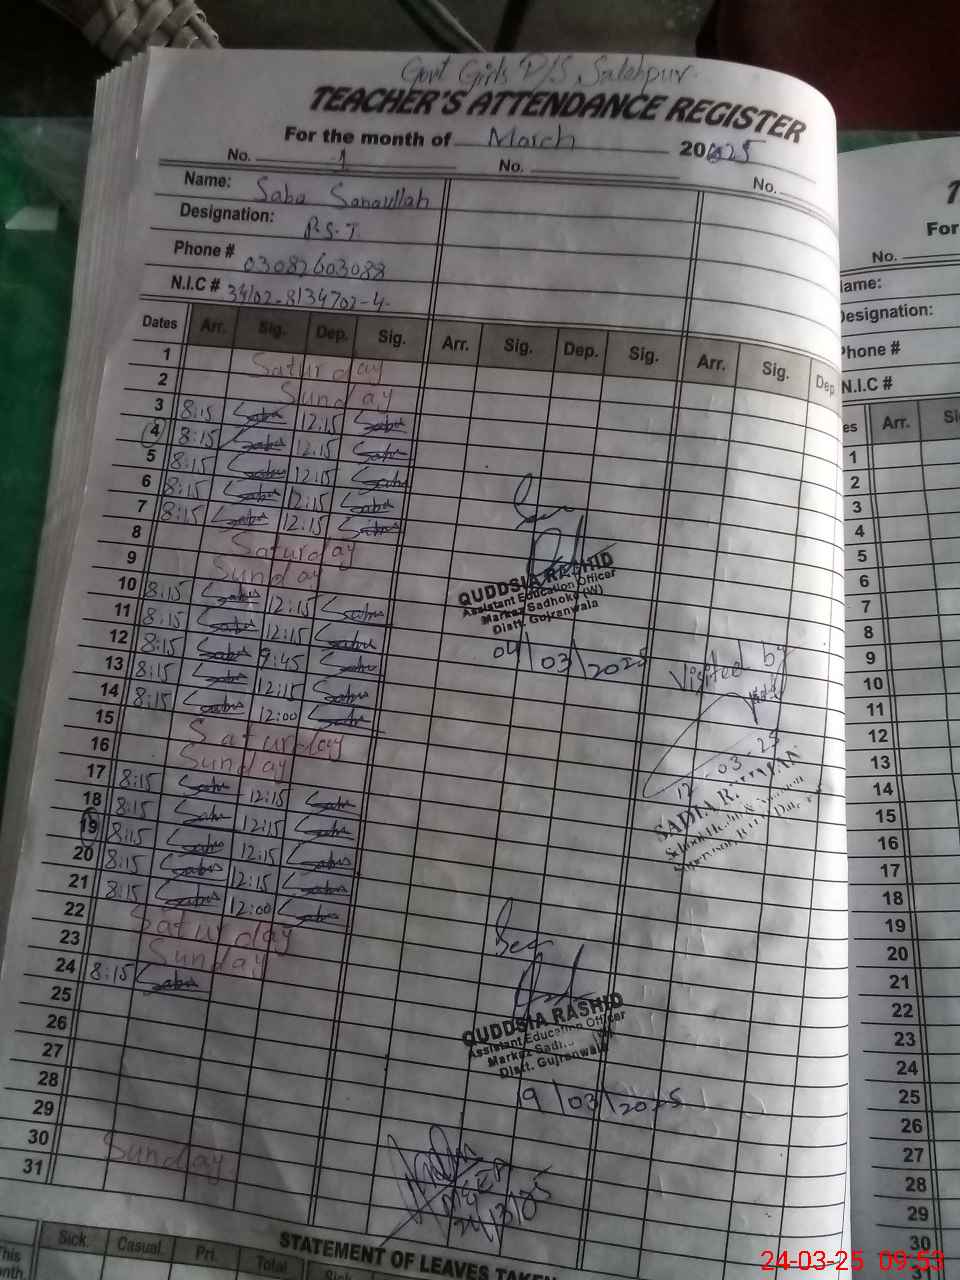 Govt Girls P/S, Salehpur.
TEACHER'S ATTENDANCE REGISTER
For the month of March 2025
No. 1 No. No.
Name: Saba Sanaullah
Designation: P.S.T
Phone # 03082603088
N.I.C # 34102-8134702-4
Dates Arr. Sig. Dep. Sig. Arr. Sig. Dep. Sig. Arr. Sig. Dep
1 Saturday
2 Sunday
3 8:15 Saba 12:15 Saba
4 8:15 Saba 12:15 Saba
5 8:15 Saba 12:15 Saba
6 8:15 Saba 12:15 Saba
7 8:15 Saba 12:15 Saba
8 Saturday
9 Sunday
10 8:15 Saba 12:15 Saba
11 8:15 Saba 12:15 Saba
12 8:15 Saba 9:45 Saba
13 8:15 Saba 12:15 Saba
14 8:15 Saba 12:00 Saba
15 Saturday
16 Sunday
17 8:15 Saba 12:15 Saba
18 8:15 Saba 12:15 Saba
19 8:15 Saba 12:15 Saba
20 8:15 Saba 12:15 Saba
21 8:15 Saba 12:00 Saba
22 Saturday
23 Sunday
24 8:15 Saba
25
26
27
28
29
30 Sunday
31
Seen
QUDDSIA RASHID
Assistant Education Officer
Markaz Sadhoke (W)
Distt. Gujranwala
04/03/2025
Visited by
12-03-25
SADIA R.
School Health & Nutrition
Supervisor
Seen
QUDDSIA RASHID
Assistant Education Officer
Markaz Sadi...
Distt. Gujranwala
19/03/2025
24/3/25
STATEMENT OF LEAVES TAKEN
Sick. Casual. Pri. Total Sick
This
onth.
T
For
No.
lame:
Designation:
Phone #
N.I.C #
es Arr. Si
1
2
3
4
5
6
7
8
9
10
11
12
13
14
15
16
17
18
19
20
21
22
23
24
25
26
27
28
29
30
31
24-03-25 09:53